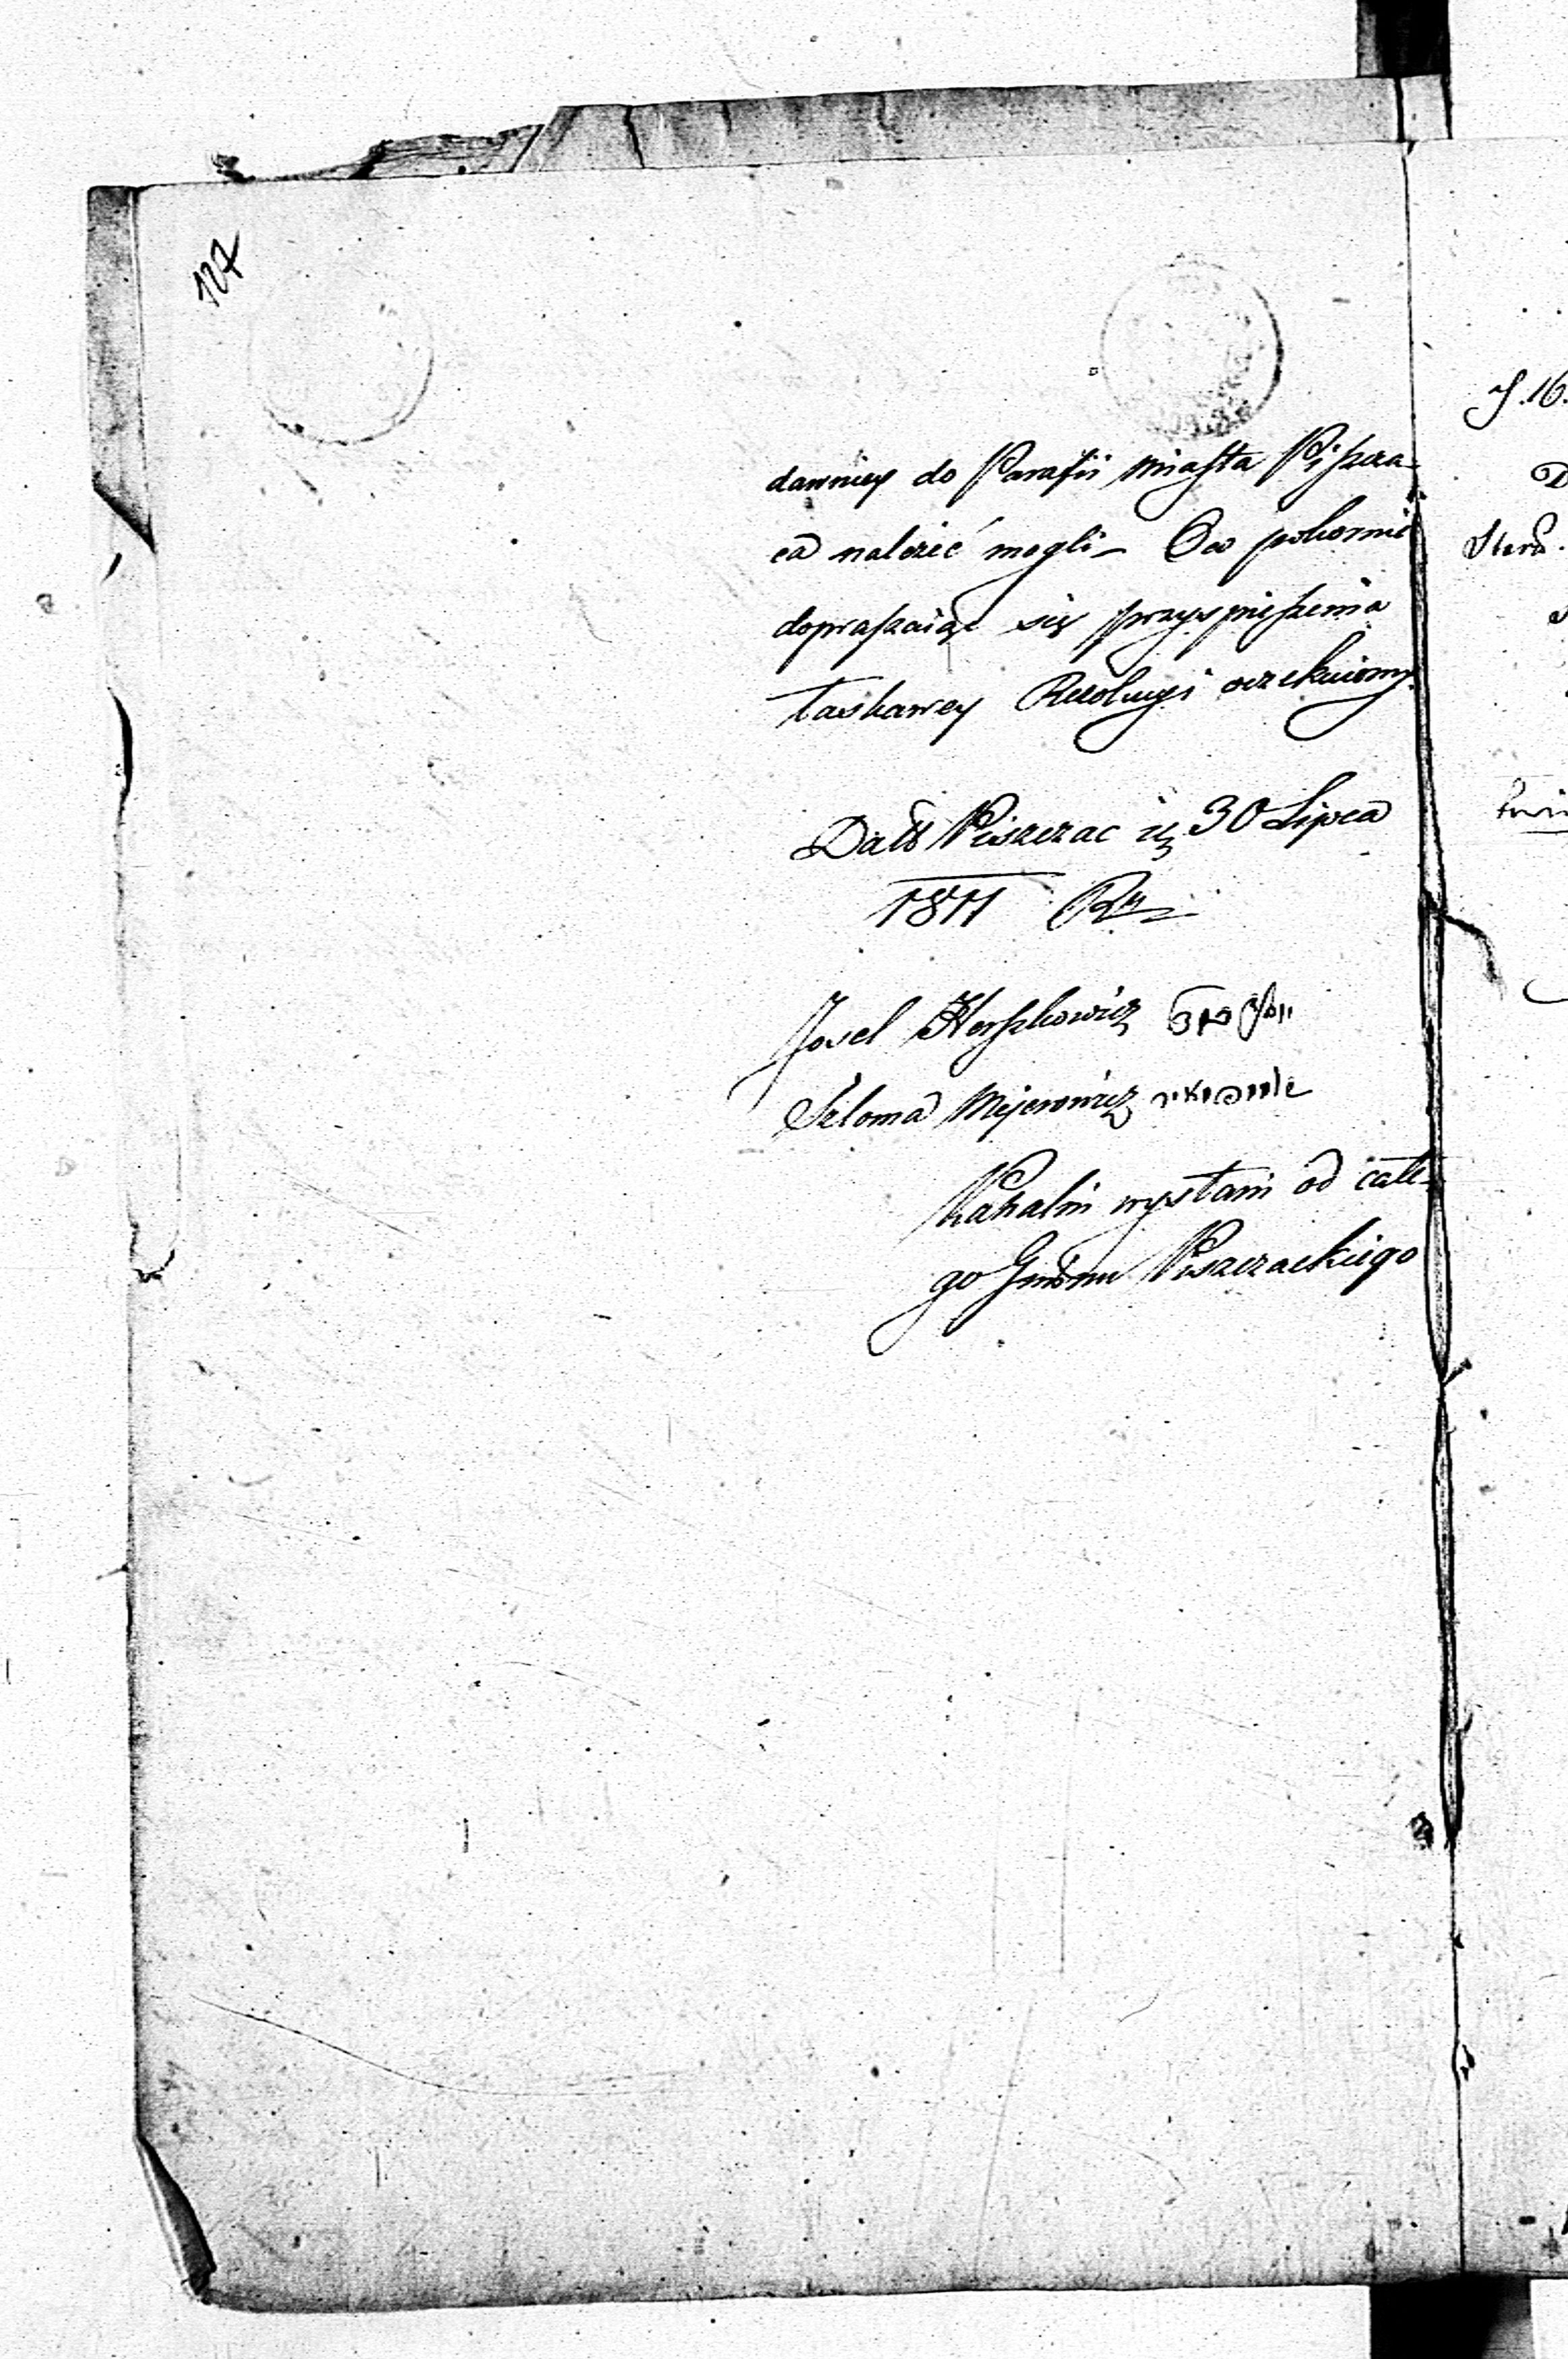 127
dawniey do Parafii Miasta Piszcza-
ca należeć mogli – Oco pokornie
dopraszaiąc się przyspieszenia
łaskawey Rezolucyi oczekuiemy.
Datt Piszczac 30 Lipca
1811 Rn
Josel Herszkowicz יוסל
Szloma Mejerowicz
Kahalni wysłani od całe-
go Gminu Piszczackiego